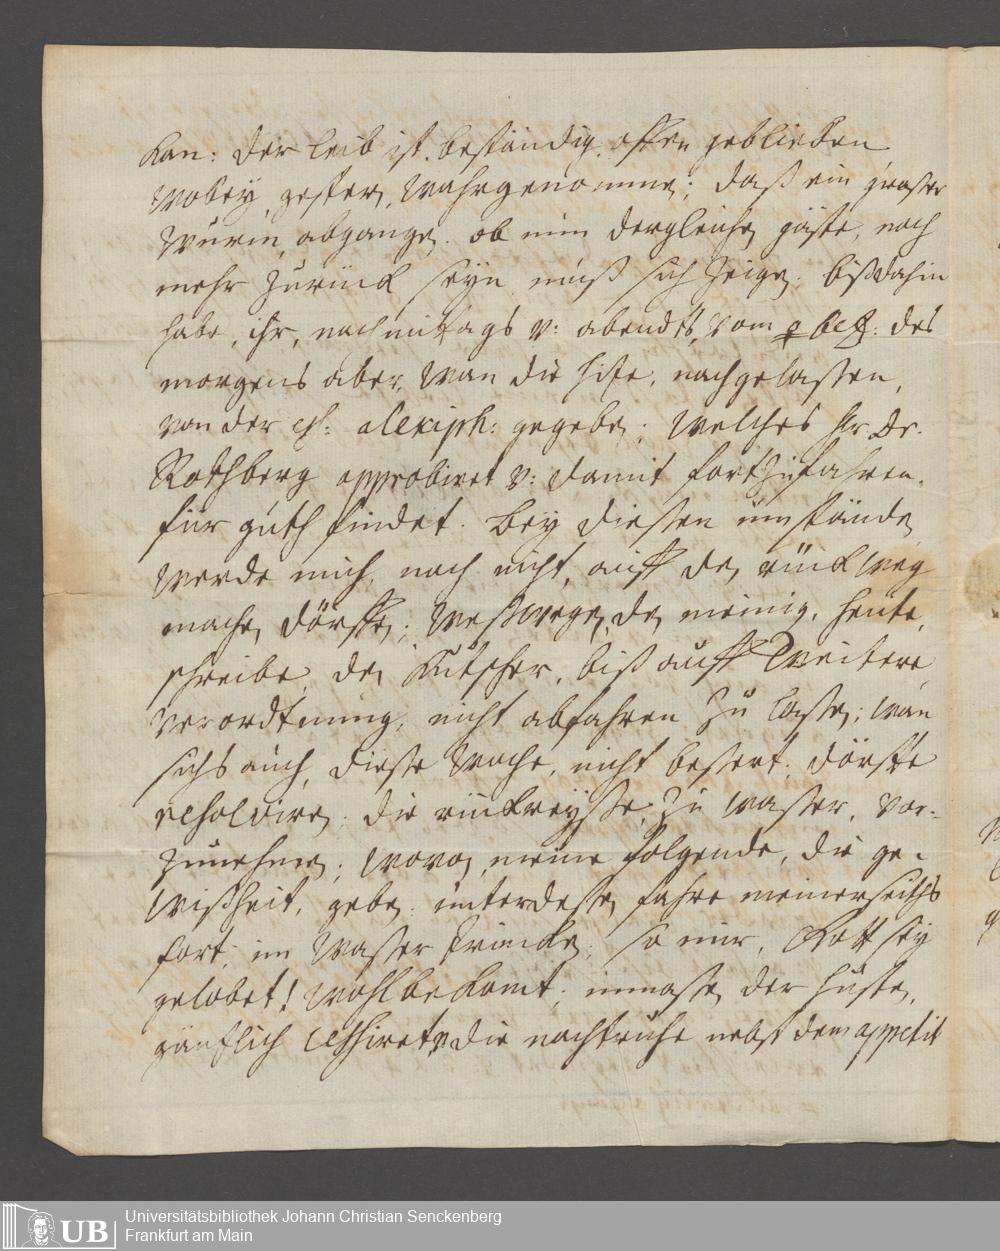 Kan: der leib ist beständig offen geblieben,
wobey, gestern, wahrgenommen; daß ein großer
wurm, abgangen. ob nun dergleichen gäste, noch
mehr zurück seyn muß sich zeigen: bißdahin
habe, ihr, nachmittags v: abendts, vom des
morgens aber, wan die hitze, nachgelaßen,
von der alexiph: gegeben; welches Hr. Dr.
Rothberg approbiret v: damit fortzufahren.
für guth findet. bey dießen umständen
werde mich, noch nicht, auff den rückweg
machen dörffen; weßwegen, den meinig. heute,
schreibe, den kutscher, biß auff weitere
verordtnung, nicht abfahren zu laßen; wan
sichs auch, dieße woche, nicht beßert; dörffte
resolviren: die rückreyße, zu waßer, vor-
zunehmen; wovon, meine folgende, die ge-
wißheit, geben. unterdeßen fahre meinerseiths
fort, im waßer trincken; so mir, Gott sey
gelobet! wohl bekomt; inmaßen der husten,
gäntzlich cessiret v: die nachtruhe nebst dem appetit
Universitätsbibliothek Johann Christian Senckenberg
Frankfurt am Main
UB